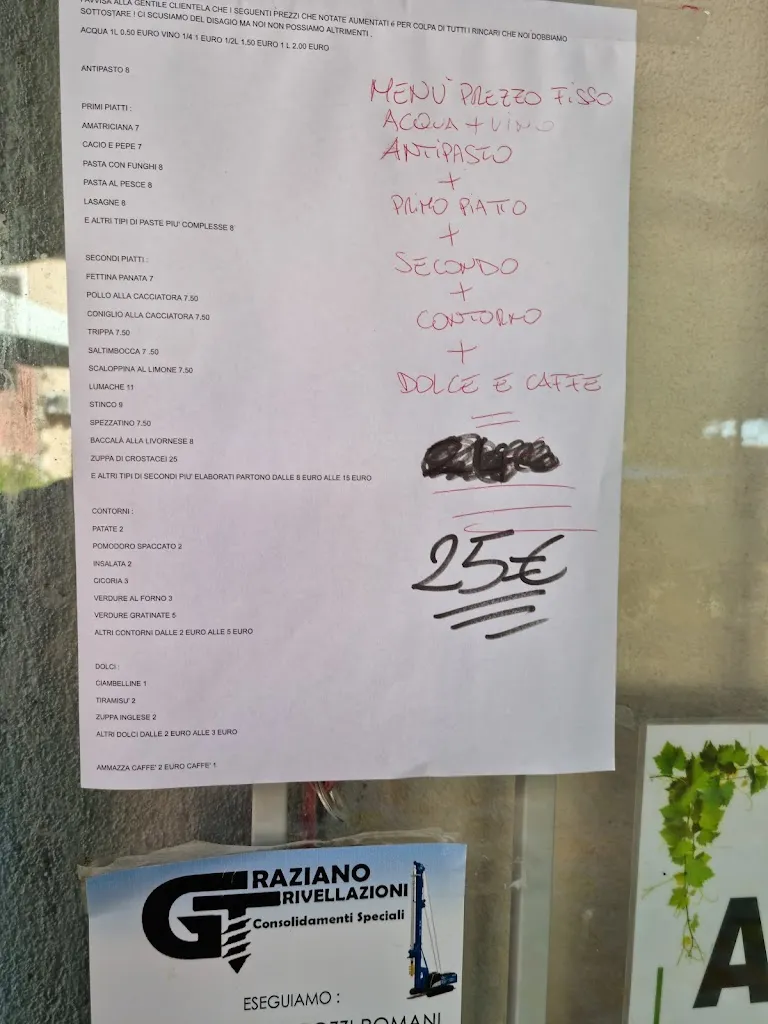 AVVISA ALLA GENTILE CLIENTELA CHE I SEGUENTI PREZZI CHE NOTATE AUMENTATI é PER COLPA DI TUTTI I RINCARI CHE NOI DOBBIAMO
SOTTOSTARE ! CI SCUSIAMO DEL DISAGIO MA NOI NON POSSIAMO ALTRIMENTI .
ACQUA 1L 0.50 EURO VINO 1/4 1 EURO 1/2L 1.50 EURO 1 L 2.00 EURO
ANTIPASTO 8
PRIMI PIATTI :
AMATRICIANA 7
CACIO E PEPE 7
PASTA CON FUNGHI 8
PASTA AL PESCE 8
LASAGNE 8
E ALTRI TIPI DI PASTE PIU' COMPLESSE 8
SECONDI PIATTI :
FETTINA PANATA 7
POLLO ALLA CACCIATORA 7.50
CONIGLIO ALLA CACCIATORA 7.50
TRIPPA 7.50
SALTIMBOCCA 7 .50
SCALOPPINA AL LIMONE 7.50
LUMACHE 11
STINCO 9
SPEZZATINO 7.50
BACCALÀ ALLA LIVORNESE 8
ZUPPA DI CROSTACEI 25
E ALTRI TIPI DI SECONDI PIU' ELABORATI PARTONO DALLE 8 EURO ALLE 15 EURO
CONTORNI :
PATATE 2
POMODORO SPACCATO 2
INSALATA 2
CICORIA 3
VERDURE AL FORNO 3
VERDURE GRATINATE 5
ALTRI CONTORNI DALLE 2 EURO ALLE 5 EURO
DOLCI :
CIAMBELLINE 1
TIRAMISU' 2
ZUPPA INGLESE 2
ALTRI DOLCI DALLE 2 EURO ALLE 3 EURO
AMMAZZA CAFFE' 2 EURO CAFFE' 1
MENÙ PREZZO FISSO
ACQUA + VINO
ANTIPASTO
+
PRIMO PIATTO
+
SECONDO
+
CONTORNO
+
DOLCE E CAFFE
=
25€
GT RAZIANO
RIVELLAZIONI
Consolidamenti Speciali
ESEGUIAMO :
POZZI ROMANI
A